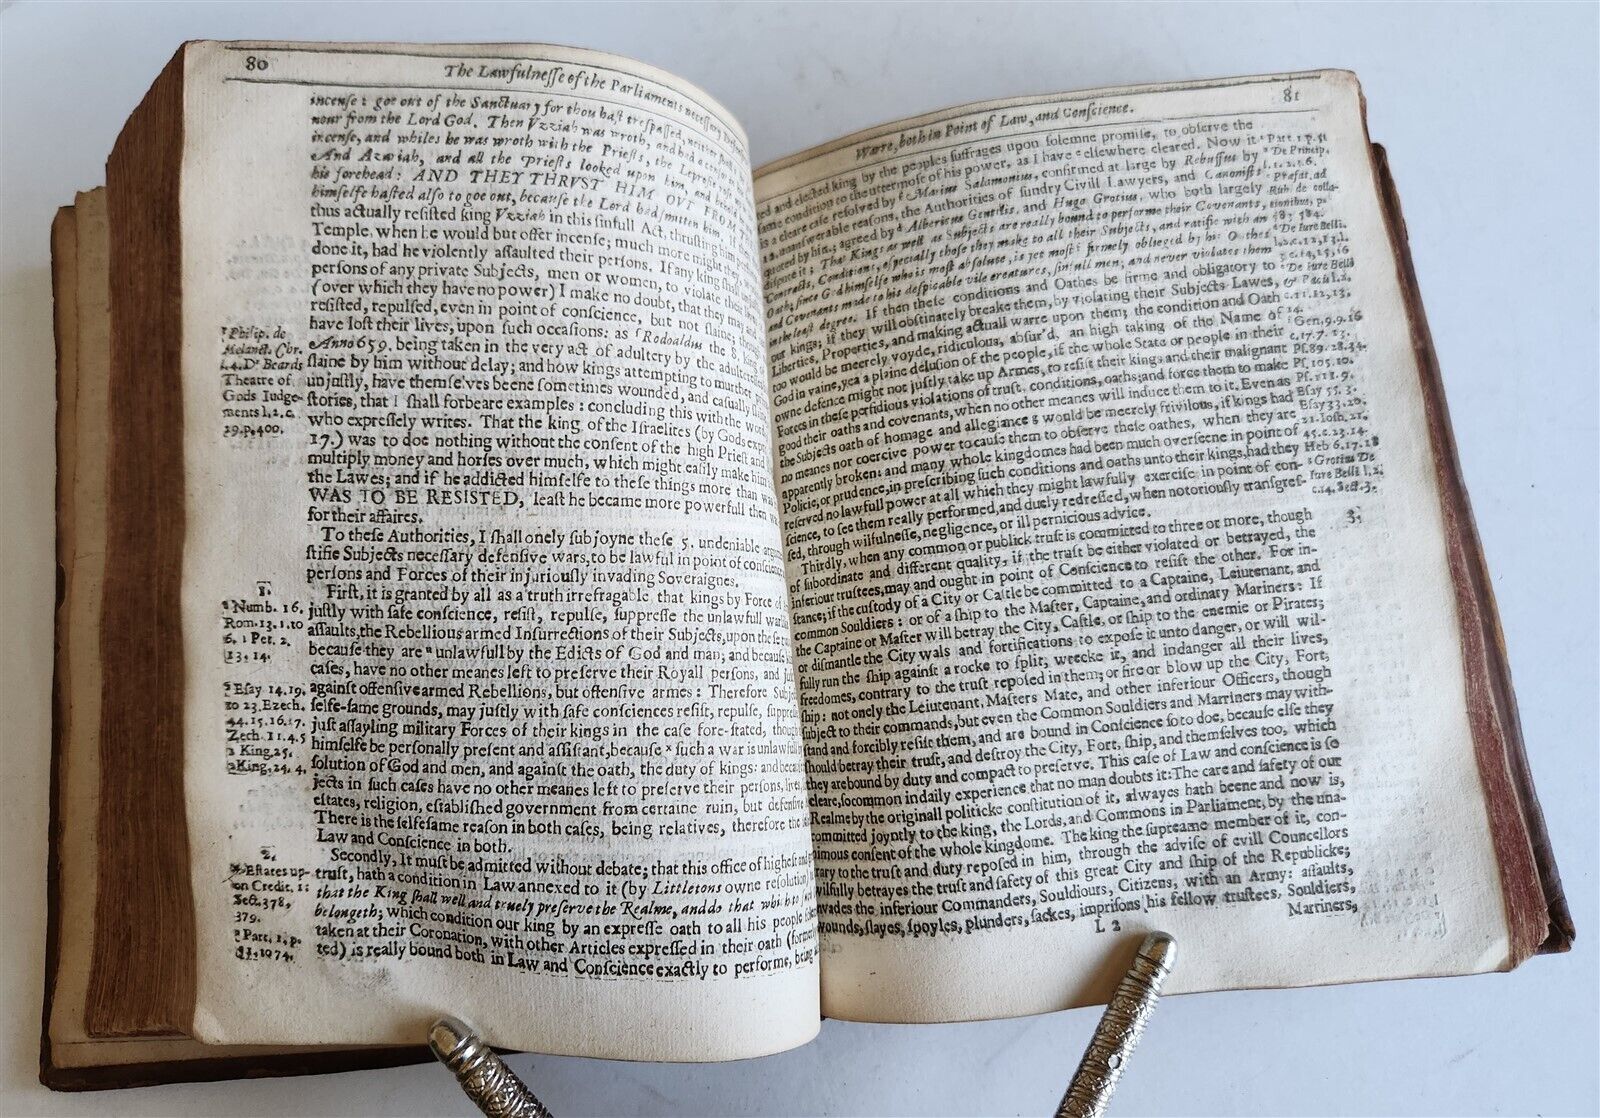 80
The Lawfulnesse of the Parliaments necessary Defensive
incense: goe out of the Sanctuary for thou hast trespassed, neither shall
nour from the Lord God. Then Vzziah was wroth, and had a censer
incense, and whiles he was wroth with the Priests, the Leprosie rose
And Azariah, and all the Priests looked upon him, and behold
his forehead: AND THEY THRVST HIM OVT FROM
himselfe hasted also to goe out, because the Lord had smitten him. If
thus actually resisted king Vzziah in this sinfull Act, thrusting him
Temple, when he would but offer incense; much more might they
done it, had he violently assaulted their persons. If any king shall
persons of any private Subjects, men or women, to violate their
(over which they have no power) I make no doubt, that they may and
resisted, repulsed, even in point of conscience, but not slaine; though
have lost their lives, upon such occasions: as Rodoaldus the 8. king
Anno 659. being taken in the very act of adultery by the adulteresse
slaine by him without delay; and how kings attempting to murther
unjustly, have themselves beene sometimes wounded, and casually slaine
stories, that I shall forbeare examples: concluding this with the words
who expressely writes. That the king of the Israelites (by Gods
17.) was to doe nothing without the consent of the high Priest and
multiply money and horses over much, which might easily make him
the Lawes; and if he addicted himselfe to these things more than was
WAS TO BE RESISTED, least he became more powerfull then was
for their affaires.
To these Authorities, I shall onely subjoyne these 5. undeniable
stifie Subjects necessary defensive wars, to be lawful in point of conscience
persons and Forces of their injuriously invading Soveraignes.
First, it is granted by all as a truth irrefragable that kings by Force of
justly with safe conscience, resist, repulse, suppresse the unlawfull warlike
assaults, the Rebellious armed Insurrections of their Subjects, upon these
because they are unlawfull by the Edicts of God and man; and because
cases, have no other meanes left to preserve their Royall persons, and just
against offensive armed Rebellions, but offensive armes: Therefore
selfe-same grounds, may justly with safe consciences resist, repulse, suppresse
just assayling military Forces of their kings in the case fore-stated, though
himselfe be personally present and assistant, because such a war is unlawfull
solution of God and men, and against the oath, the duty of kings: and because
jects in such cases have no other meanes left to preserve their persons, lives,
estates, religion, established government from certaine ruin, but defensive
There is the selfesame reason in both cases, being relatives, therefore the
Law and Conscience in both.
Secondly, It must be admitted without debate; that this office of highest and
trust, hath a condition in Law annexed to it (by Littletons owne resolution)
that the King shall well and truely preserve the Realme, and do that which to
belongeth; which condition our king by an expresse oath to all his people
taken at their Coronation, with other Articles expressed in their oath
ted) is really bound both in Law and Conscience exactly to performe, being
Philip. de
Melanct. Chr.
l. 4. Dr Beards
Theatre of
Gods Iudge-
ments l. 2. c.
39. p. 400.
1.
Numb. 16.
Rom. 13. 1. to
6. 1 Pet. 2.
13, 14.
Esay 14. 19,
20 23. Ezech.
44. 15. 16. 17.
Zech. 11. 4. 5
2 King. 25.
2 King. 24. 4.
2.
Estates up-
on Credit. l:
Sect. 378,
379.
Part. 1. p.
51. 1074.
81
Warre, both in Point of Law, and Conscience.
ted and elected king by the peoples suffrages upon solemne promise, to observe the
same condition to the uttermost of his power, as I have elsewhere cleared. Now it
is a cleare case resolved by Marius Salamonius, confirmed at large by Rebussus by
unanswerable reasons, the Authorities of sundry Civill Lawyers, and Canonists
quoted by him; agreed by Albericus Gentilis, and Hugo Grotius, who both largely
dispute it; That Kings as well as Subjects are really bound to performe their Covenants,
Contracts, Conditions, especially those they make to all their Subjects, and ratifie with an
Oath; since God himselfe who is most absolute, is yet most firmely obliged by his Oathes
and Covenants made to his despicable vile creatures, sinfull men; and never violates them
in the least degree. If then these conditions and Oathes be firme and obligatory to
our kings; if they will obstinately breake them, by violating their Subjects Lawes,
Liberties, Properties, and making actuall warre upon them; the condition and Oath
too would be meerely voyde, ridiculous, absur'd, an high taking of the Name of
God in vaine, yea a plaine delusion of the people, if the whole State or people in their
owne defence might not justly take up Armes, to resist their kings and their malignant
Forces in these perfidious violations of trust, conditions, oaths; and force them to make
good their oaths and covenants, when no other meanes will induce them to it. Even as
the Subjects oath of homage and allegiance would be meerely frivilous, if kings had
no meanes nor coercive power to cause them to observe these oathes, when they are
apparently broken: and many whole kingdomes had been much overseene in point of
Policie, or prudence, in prescribing such conditions and oaths unto their kings, had they
reserved no lawfull power at all which they might lawfully exercise in point of con-
science, to see them really performed, and duely redressed, when notoriously transgres-
sed, through wilfulnesse, negligence, or ill pernicious advice.
Thirdly, when any common or publick trust is committed to three or more, though
of subordinate and different quality, if the trust be either violated or betrayed, the
inferiour trustees, may and ought in point of Conscience to resist the other. For in-
stance; if the custody of a City or Castle be committed to a Captaine, Leiutenant, and
common Souldiers: or of a ship to the Master, Captaine, and ordinary Mariners: If
the Captaine or Master will betray the City, Castle, or ship to the enemie or Pirates;
or dismantle the City wals and fortifications to expose it unto danger, or will wil-
fully run the ship against a rocke to split, wrecke it, and indanger all their lives,
freedomes, contrary to the trust reposed in them; or fire or blow up the City, Fort,
ship: not onely the Leiutenant, Masters Mate, and other inferiour Officers, though
subject to their commands, but even the Common Souldiers and Marriners may with-
stand and forcibly resist them, and are bound in Conscience so to doe, because else they
should betray their trust, and destroy the City, Fort, ship, and themselves too, which
they are bound by duty and compact to preserve. This case of Law and conscience is so
cleare, so common in daily experience that no man doubts it: The care and safety of our
Realme by the originall politicke constitution of it, alwayes hath beene and now is,
committed joyntly to the king, the Lords, and Commons in Parliament, by the una-
nimous consent of the whole kingdome. The king the supreame member of it, con-
trary to the trust and duty reposed in him, through the advise of evill Councellors
wilfully betrayes the trust and safety of this great City and ship of the Republicke;
invades the inferiour Commanders, Souldiours, Citizens, with an Army: assaults,
wounds, slayes, spoyles, plunders, sackes, imprisons his fellow trustees, Souldiers,
L 2
Marriners,
Part 1. p. 51
De Princip.
l. 1. 2. 6.
Præfat. ad
Rub. de colla-
tionibus, p.
583. 584.
De Iure Belli,
l. 3. c. 12, 13.
De Iure Belli
c. 11, 12, 13,
14.
Gen. 9. 9. 16
c. 17. 7. 13.
Ps. 89. 28. 34.
Ps. 105. 10.
Ps. 111. 9.
Esay 55. 3.
Esay 33. 20,
21. Iosh. 21.
45. c. 23. 14.
Heb 6. 17. 18
Grotius De
Iure Belli l. 2.
c. 14. Sect. 3.
3.